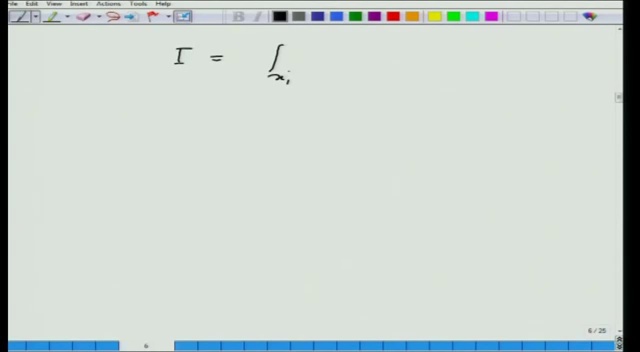 File Edit View Insert Actions Tools Help
B I
I = ∫
xi
6 / 25
6